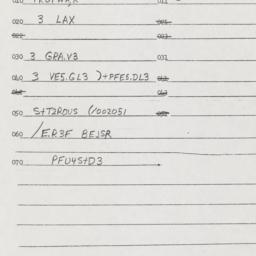 020 3 LAX
022
030 3 GPA.V3 032
040 3 VE5.GL3 )+PFES.DL3
050 S+T2ROUS (/002051
060 /E.R3F BEJSR
070 PFU4S+D3